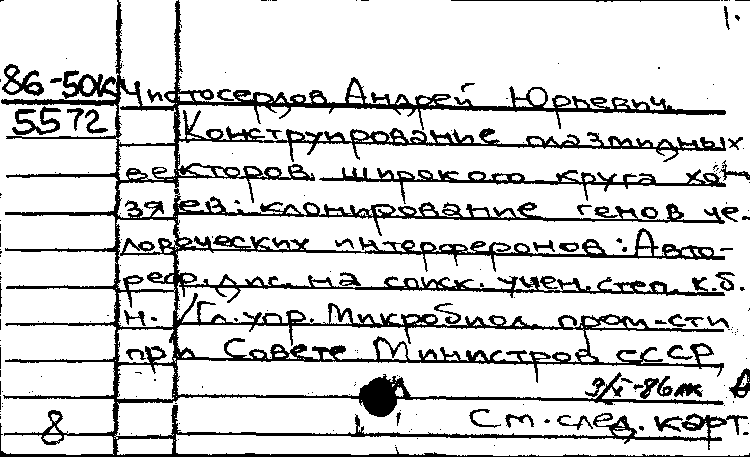 1.
86-50к Чистосердов, Андрей Юрьевич.
5572 Конструирование плазмидных
векторов широкого круга хо-
зяев: клонирование генов че-
ловеческих интерферонов: Авто-
реф. дис. на соиск. учен. степ. к.б.
н. / Гл. упр. Микробиол. пром-сти
при Совете Министров СССР,
8 См. след. карт.